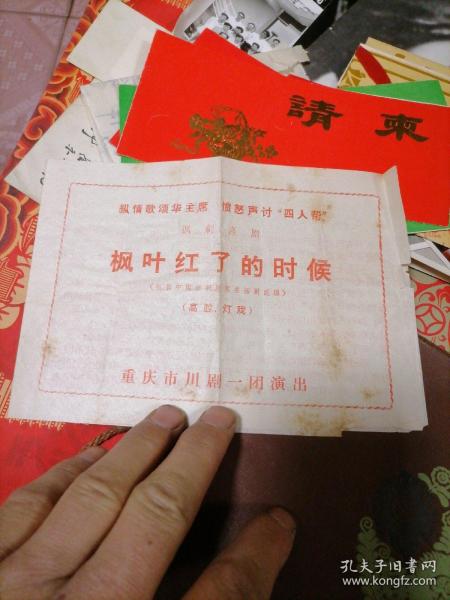 請柬
纵情歌颂华主席 愤怒声讨“四人帮”
讽刺喜剧
枫叶红了的时候
(高腔、灯戏)
重庆市川剧一团演出
孔夫子旧书网
www.kongfz.com